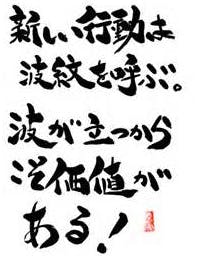 新しい行動は
波紋を呼ぶ。
波が立つから
こそ価値が
ある！